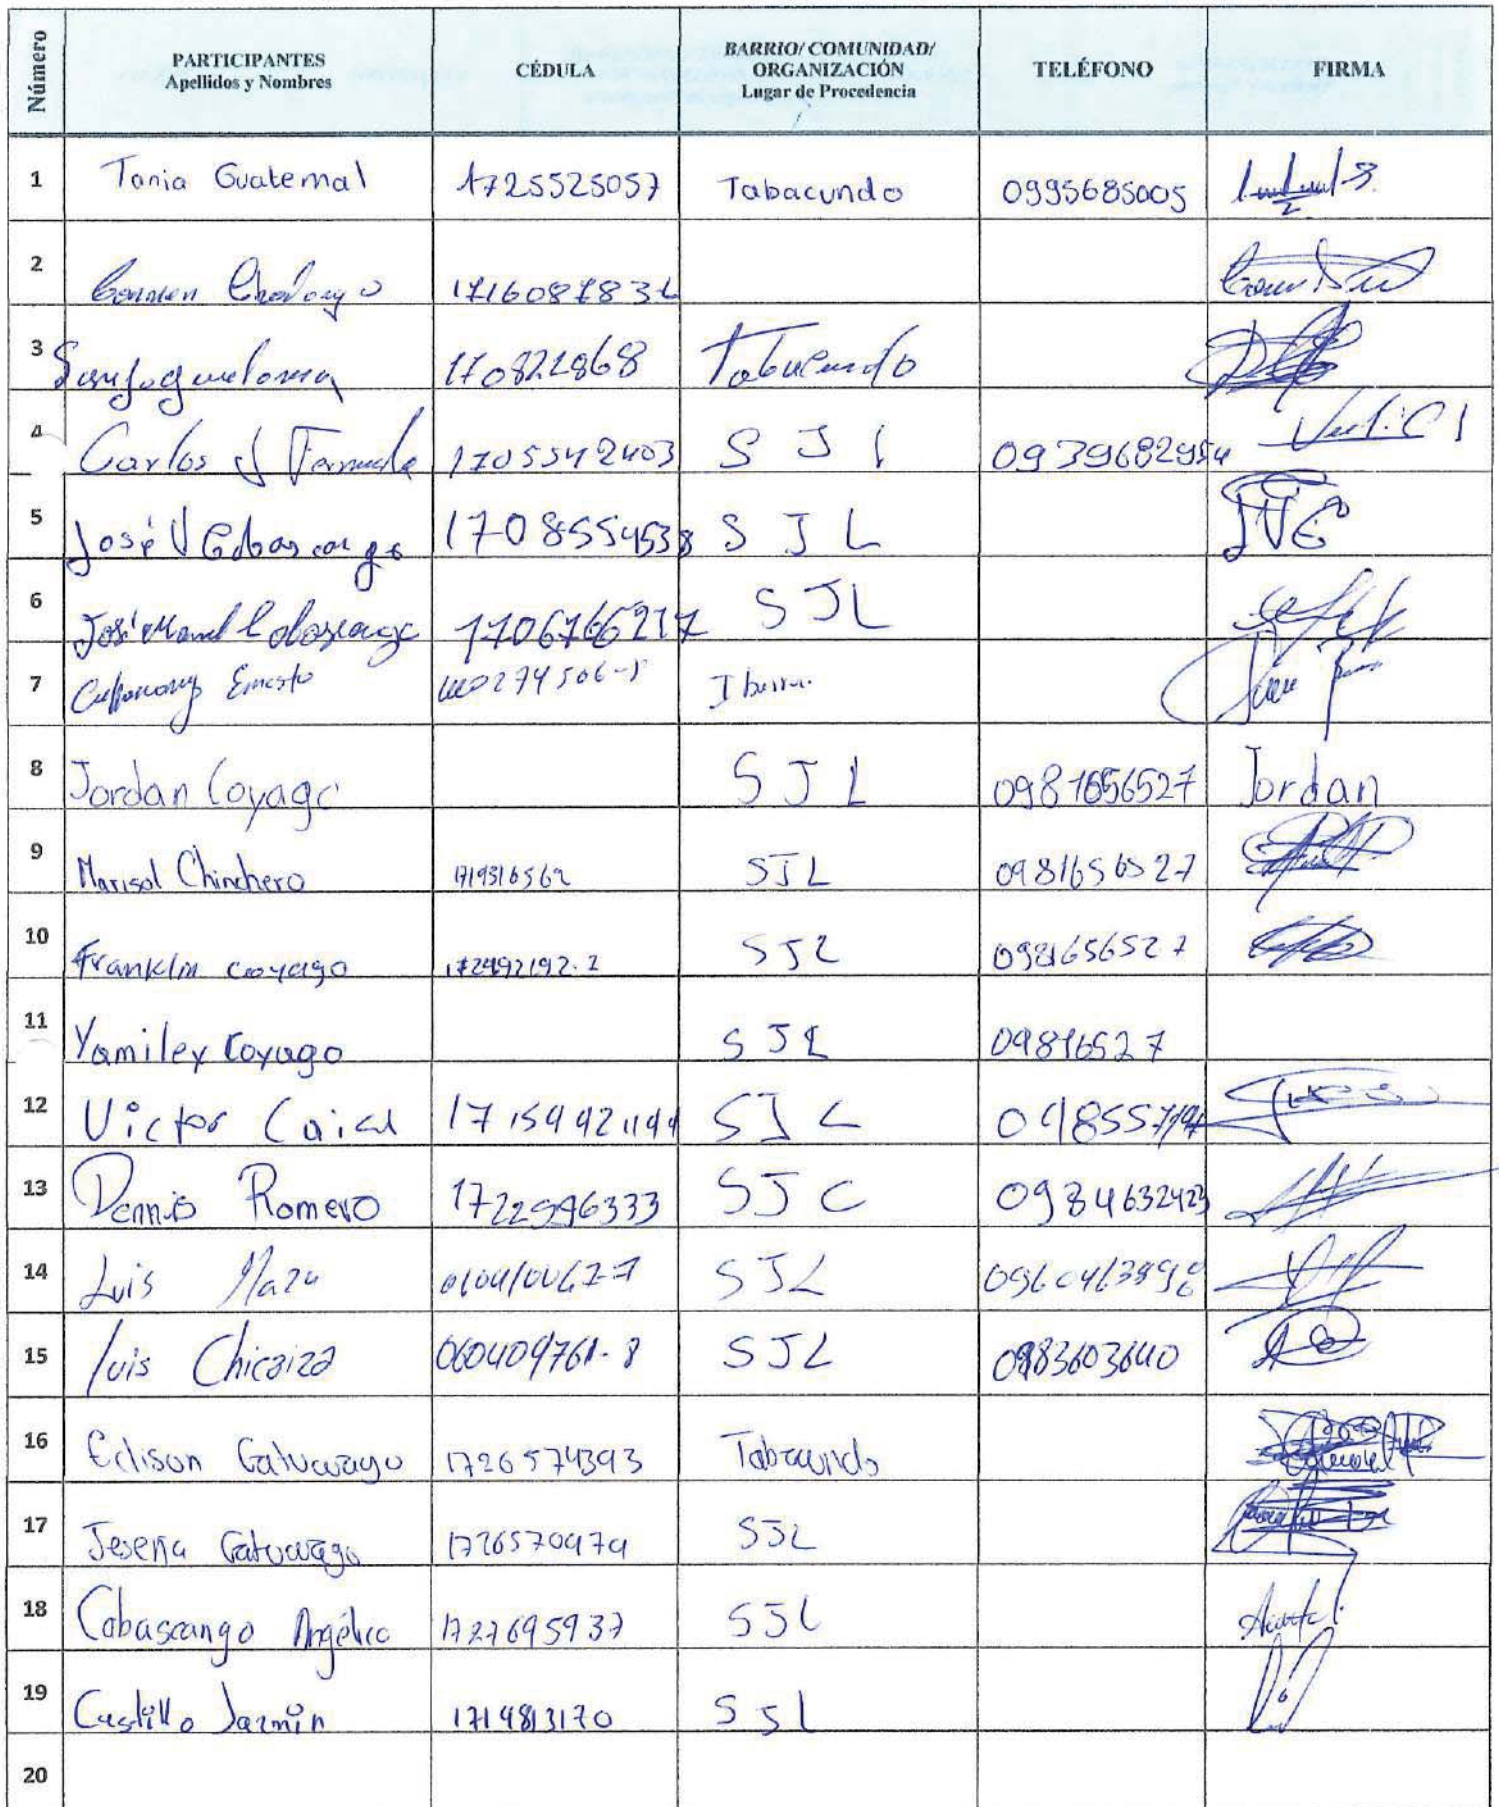 Número
PARTICIPANTES
Apellidos y Nombres
CÉDULA
BARRIO/ COMUNIDAD/
ORGANIZACIÓN
Lugar de Procedencia
TELÉFONO
FIRMA
1 Tania Guatemal 1725525057 Tabacundo 0995685005
2 Carmen
3 Tabacundo
4 Carlos 1705542403 S J L 0939682954
5 José V Cabascango 1708554538 S J L
6 José Manuel Cabascango 1706766217 SJL
7 Ernesto Ibarra
8 Jordan Coyago SJL 0981656527 Jordan
9 Marisol Chinchero 1719316562 SJL 0981656527
10 Franklin coyago 172492192-2 SJL 0981656527
11 Yamiley Coyago SJL 09816527
12 Victor SJL
13 Dennis Romero 1722596333 SJC 0984632423
14 Luis SJL
15 luis Chicaiza 060409761-8 SJL 0983603640
16 Edison Catucuago 1726574393 Tabacundo
17 Jesenia Catucuago SJL
18 Cabascango Angélica 1727695937 SJL
19 Castillo Jazmin 1719813170 SJL
20